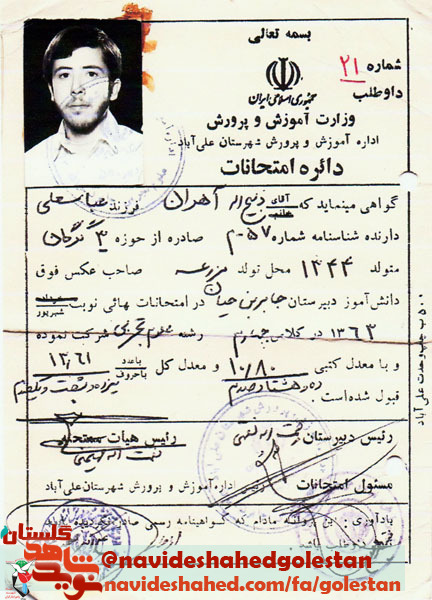 بسمه تعالی
شماره ۲۱
داوطلب
جمهوری اسلامی ایران
وزارت آموزش و پرورش
اداره آموزش و پرورش شهرستان علی‌آباد
دائره امتحانات
گواهی مینماید که آقای ذبیح اله آهنران فرزند عباسعلی
دارنده شناسنامه شماره ۵۷-م صادره از حوزه ۳ گرگان
متولد ۱۳۴۴ محل تولد مزرعه صاحب عکس فوق
دانش‌آموز دبیرستان جابربن حیان در امتحانات نهائی نوبت خرداد شهریور
۱۳۶۳ در کلاس چهارم رشته علوم تجربی شرکت نموده
و با معدل کتبی ۱۰/۸۰ و معدل کل باعدد ۱۳/۶۱
باحروف
ده و هشتاد صدم سیزده و شصت و یکصدم
قبول شده‌است.
رئیس دبیرستان رئیس هیات ممتحنه
مسئول امتحانات رئیس اداره‌آموزش و پرورش شهرستان علی‌آباد
یادآوری: این برگ تا مادام که گواهینامه رسمی صادر نگردیده
داوطلب
۵۰۰ ب چاپ وحدت علی آباد
نوید شاهد گلستان
@navideshahedgolestan
navideshahed.com/fa/golestan